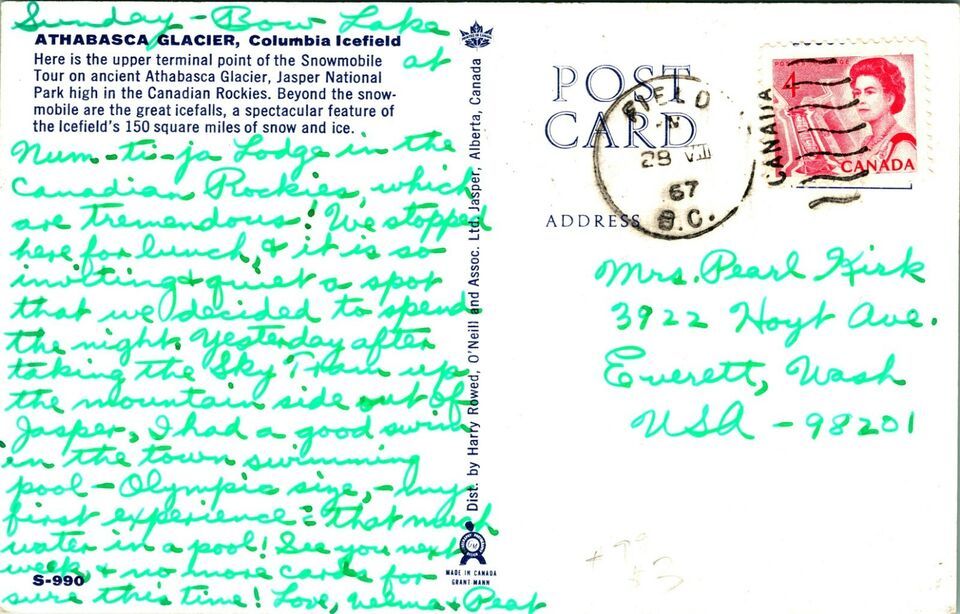 Sunday - Bow Lake
at
ATHABASCA GLACIER, Columbia Icefield
Here is the upper terminal point of the Snowmobile
Tour on ancient Athabasca Glacier, Jasper National
Park high in the Canadian Rockies. Beyond the snow-
mobile are the great icefalls, a spectacular feature of
the Icefield's 150 square miles of snow and ice.
Num-ti-ja Lodge in the
Canadian Rockies, which
are tremendous! We stopped
here for lunch, & it is so
inviting & quiet a spot
that we decided to spend
the night. Yesterday after
taking the Sky Tram up
the mountain side out of
Jasper, I had a good swim
in the town swimming
pool - Olympic size, - my
first experience = that much
water in a pool! See you next
week, & no more cards for
sure this time! Love, Velma & Peat
S-990
Dist. by Harry Rowed, O'Neill and Assoc. Ltd. Jasper, Alberta, Canada
MADE IN CANADA
GRANT MANN
POST
CARD
ADDRESS
28 VIII
67
B.C.
POSTAGE
4
CANADA
CANADA
Mrs. Pearl Kirk
3922 Hoyt Ave.
Everett, Wash
USA - 98201